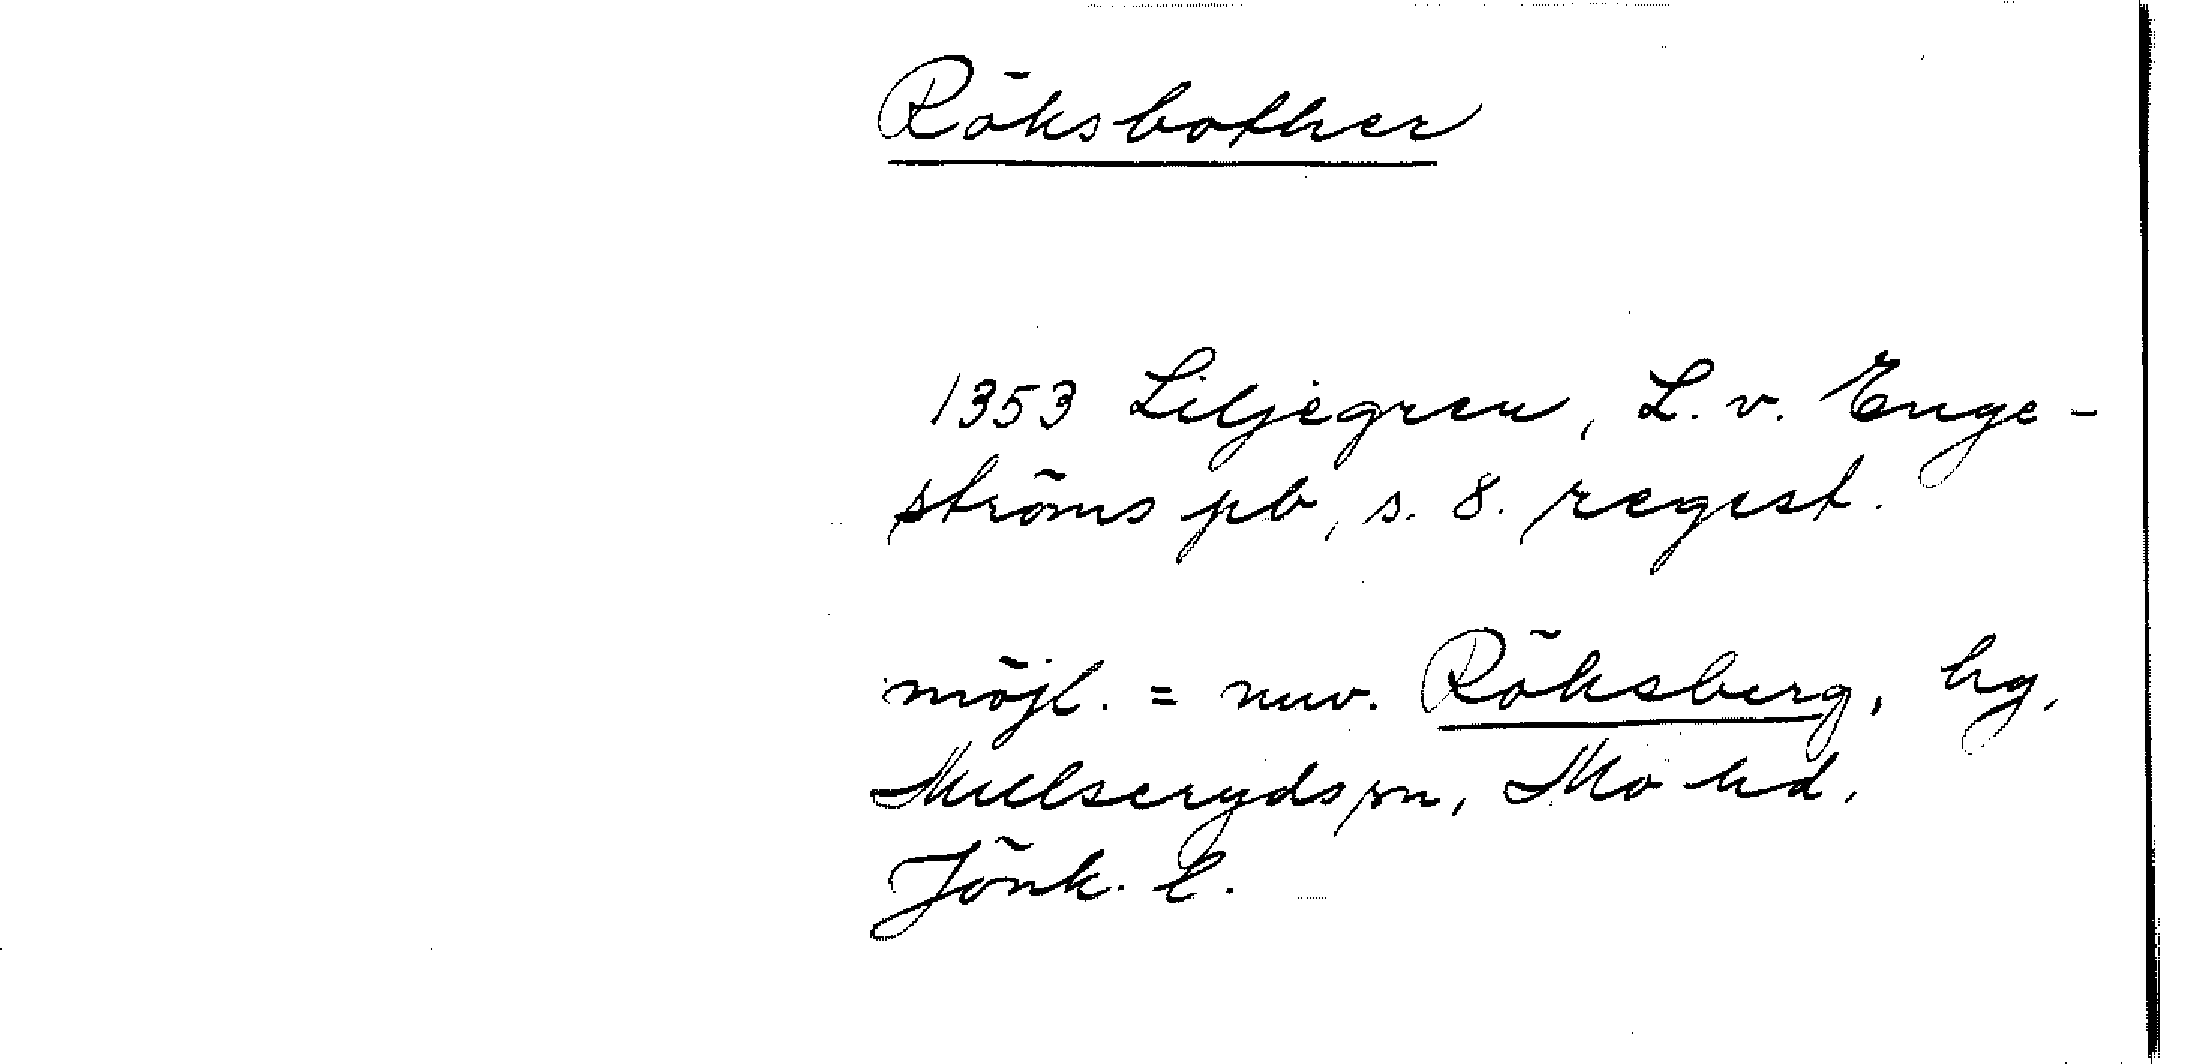 Röksbother
1353 Liljegren, L. v. Enge-
ströms pb, s. 8. regest.
möjl. = nuv. Röksberg, hg,
Mulseryds sn, Mo hd,
Jönk. l.